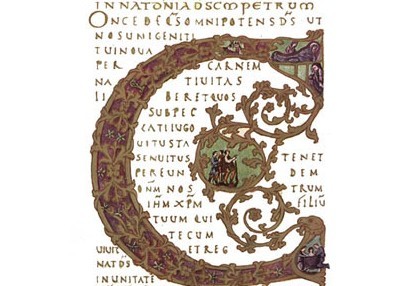 IN NAT DNI AD SCM PETRUM
ONCEDE QS OMNIPOTENS DS UT
NOS UNIGENITI
TUI NOUA
PER CARNEM
NA TIUITAS
LI BERET QUOS
SUB PEC
CATI IUGO
UETUSTA
SERUITUS TENET
PER EUN DEM
DNM NOS TRUM
IHM XPM FILIU
TUUM QUI
TECUM
UIUIT ET REG
NAT DS
IN UNITATE